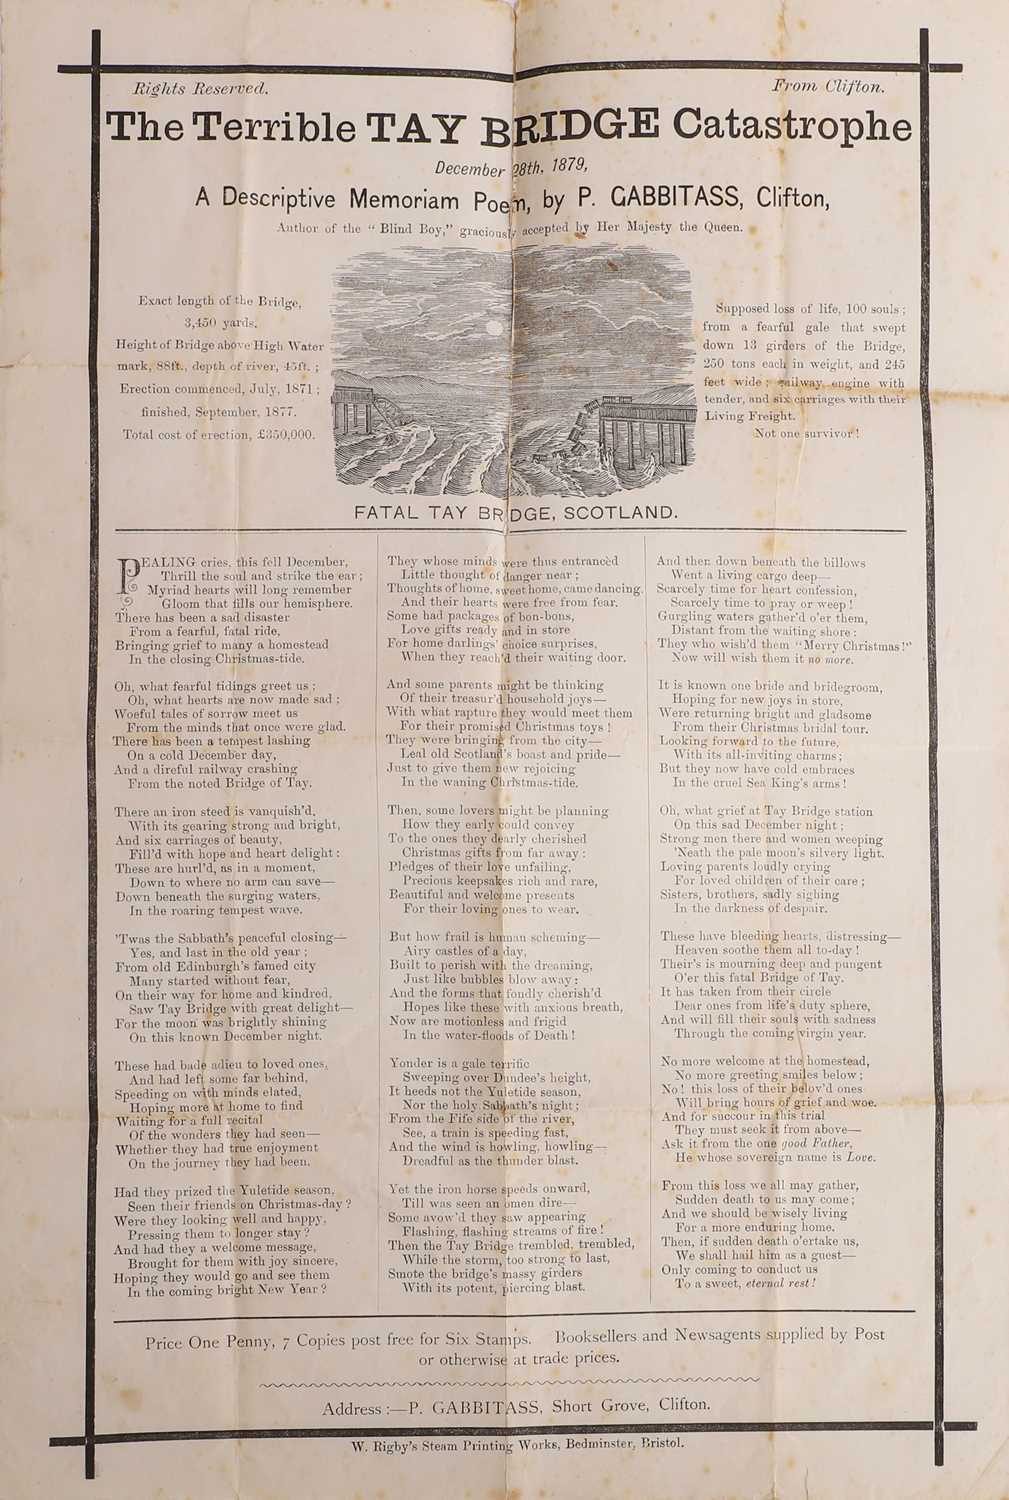 Rights Reserved.
From Clifton.
The Terrible TAY BRIDGE Catastrophe
December 28th, 1879,
A Descriptive Memoriam Poem, by P. GABBITASS, Clifton,
Author of the "Blind Boy," graciously accepted by Her Majesty the Queen.
Exact length of the Bridge,
3,450 yards.
Height of Bridge above High Water
mark, 88ft., depth of river, 45ft. ;
Erection commenced, July, 1871 ;
finished, September, 1877.
Total cost of erection, £350,000.
Supposed loss of life, 100 souls ;
from a fearful gale that swept
down 13 girders of the Bridge,
250 tons each in weight, and 245
feet wide ; railway engine with
tender, and six carriages with their
Living Freight.
Not one survivor !
FATAL TAY BRIDGE, SCOTLAND.
PEALING cries, this fell December,
Thrill the soul and strike the ear ;
Myriad hearts will long remember
Gloom that fills our hemisphere.
There has been a sad disaster
From a fearful, fatal ride,
Bringing grief to many a homestead
In the closing Christmas-tide.
Oh, what fearful tidings greet us ;
Oh, what hearts are now made sad ;
Woeful tales of sorrow meet us
From the minds that once were glad.
There has been a tempest lashing
On a cold December day,
And a direful railway crashing
From the noted Bridge of Tay.
There an iron steed is vanquish'd,
With its gearing strong and bright,
And six carriages of beauty,
Fill'd with hope and heart delight :
These are hurl'd, as in a moment,
Down to where no arm can save—
Down beneath the surging waters,
In the roaring tempest wave.
'Twas the Sabbath's peaceful closing—
Yes, and last in the old year ;
From old Edinburgh's famed city
Many started without fear,
On their way for home and kindred,
Saw Tay Bridge with great delight—
For the moon was brightly shining
On this known December night.
These had bade adieu to loved ones,
And had left some far behind,
Speeding on with minds elated,
Hoping more at home to find
Waiting for a full recital
Of the wonders they had seen—
Whether they had true enjoyment
On the journey they had been.
Had they prized the Yuletide season,
Seen their friends on Christmas-day ?
Were they looking well and happy,
Pressing them to longer stay ?
And had they a welcome message,
Brought for them with joy sincere,
Hoping they would go and see them
In the coming bright New Year ?
They whose minds were thus entrancèd
Little thought of danger near ;
Thoughts of home, sweet home, came dancing,
And their hearts were free from fear.
Some had packages of bon-bons,
Love gifts ready and in store
For home darlings' choice surprises,
When they reach'd their waiting door.
And some parents might be thinking
Of their treasur'd household joys—
With what rapture they would meet them
For their promised Christmas toys !
They were bringing from the city—
Leal old Scotland's boast and pride—
Just to give them new rejoicing
In the waning Christmas-tide.
Then, some lovers might be planning
How they early could convey
To the ones they dearly cherished
Christmas gifts from far away :
Pledges of their love unfailing,
Precious keepsakes rich and rare,
Beautiful and welcome presents
For their loving ones to wear.
But how frail is human scheming—
Airy castles of a day,
Built to perish with the dreaming,
Just like bubbles blow away :
And the forms that fondly cherish'd
Hopes like these with anxious breath,
Now are motionless and frigid
In the water-floods of Death !
Yonder is a gale terrific
Sweeping over Dundee's height,
It heeds not the Yuletide season,
Nor the holy Sabbath's night ;
From the Fife side of the river,
See, a train is speeding fast,
And the wind is howling, howling—
Dreadful as the thunder blast.
Yet the iron horse speeds onward,
Till was seen an omen dire—
Some avow'd they saw appearing
Flashing, flashing streams of fire !
Then the Tay Bridge trembled, trembled,
While the storm, too strong to last,
Smote the bridge's massy girders
With its potent, piercing blast.
And then down beneath the billows
Went a living cargo deep—
Scarcely time for heart confession,
Scarcely time to pray or weep !
Gurgling waters gather'd o'er them,
Distant from the waiting shore :
They who wish'd them "Merry Christmas !"
Now will wish them it no more.
It is known one bride and bridegroom,
Hoping for new joys in store,
Were returning bright and gladsome
From their Christmas bridal tour.
Looking forward to the future,
With its all-inviting charms ;
But they now have cold embraces
In the cruel Sea King's arms !
Oh, what grief at Tay Bridge station
On this sad December night ;
Strong men there and women weeping
'Neath the pale moon's silvery light.
Loving parents loudly crying
For loved children of their care ;
Sisters, brothers, sadly sighing
In the darkness of despair.
These have bleeding hearts, distressing—
Heaven soothe them all to-day !
Their's is mourning deep and pungent
O'er this fatal Bridge of Tay.
It has taken from their circle
Dear ones from life's duty sphere,
And will fill their souls with sadness
Through the coming virgin year.
No more welcome at the homestead,
No more greeting smiles below ;
No ! this loss of their belov'd ones
Will bring hours of grief and woe.
And for succour in this trial
They must seek it from above—
Ask it from the one good Father,
He whose sovereign name is Love.
From this loss we all may gather,
Sudden death to us may come ;
And we should be wisely living
For a more enduring home.
Then, if sudden death o'ertake us,
We shall hail him as a guest—
Only coming to conduct us
To a sweet, eternal rest !
Price One Penny, 7 Copies post free for Six Stamps. Booksellers and Newsagents supplied by Post
or otherwise at trade prices.
Address :—P. GABBITASS, Short Grove, Clifton.
W. Rigby's Steam Printing Works, Bedminster, Bristol.